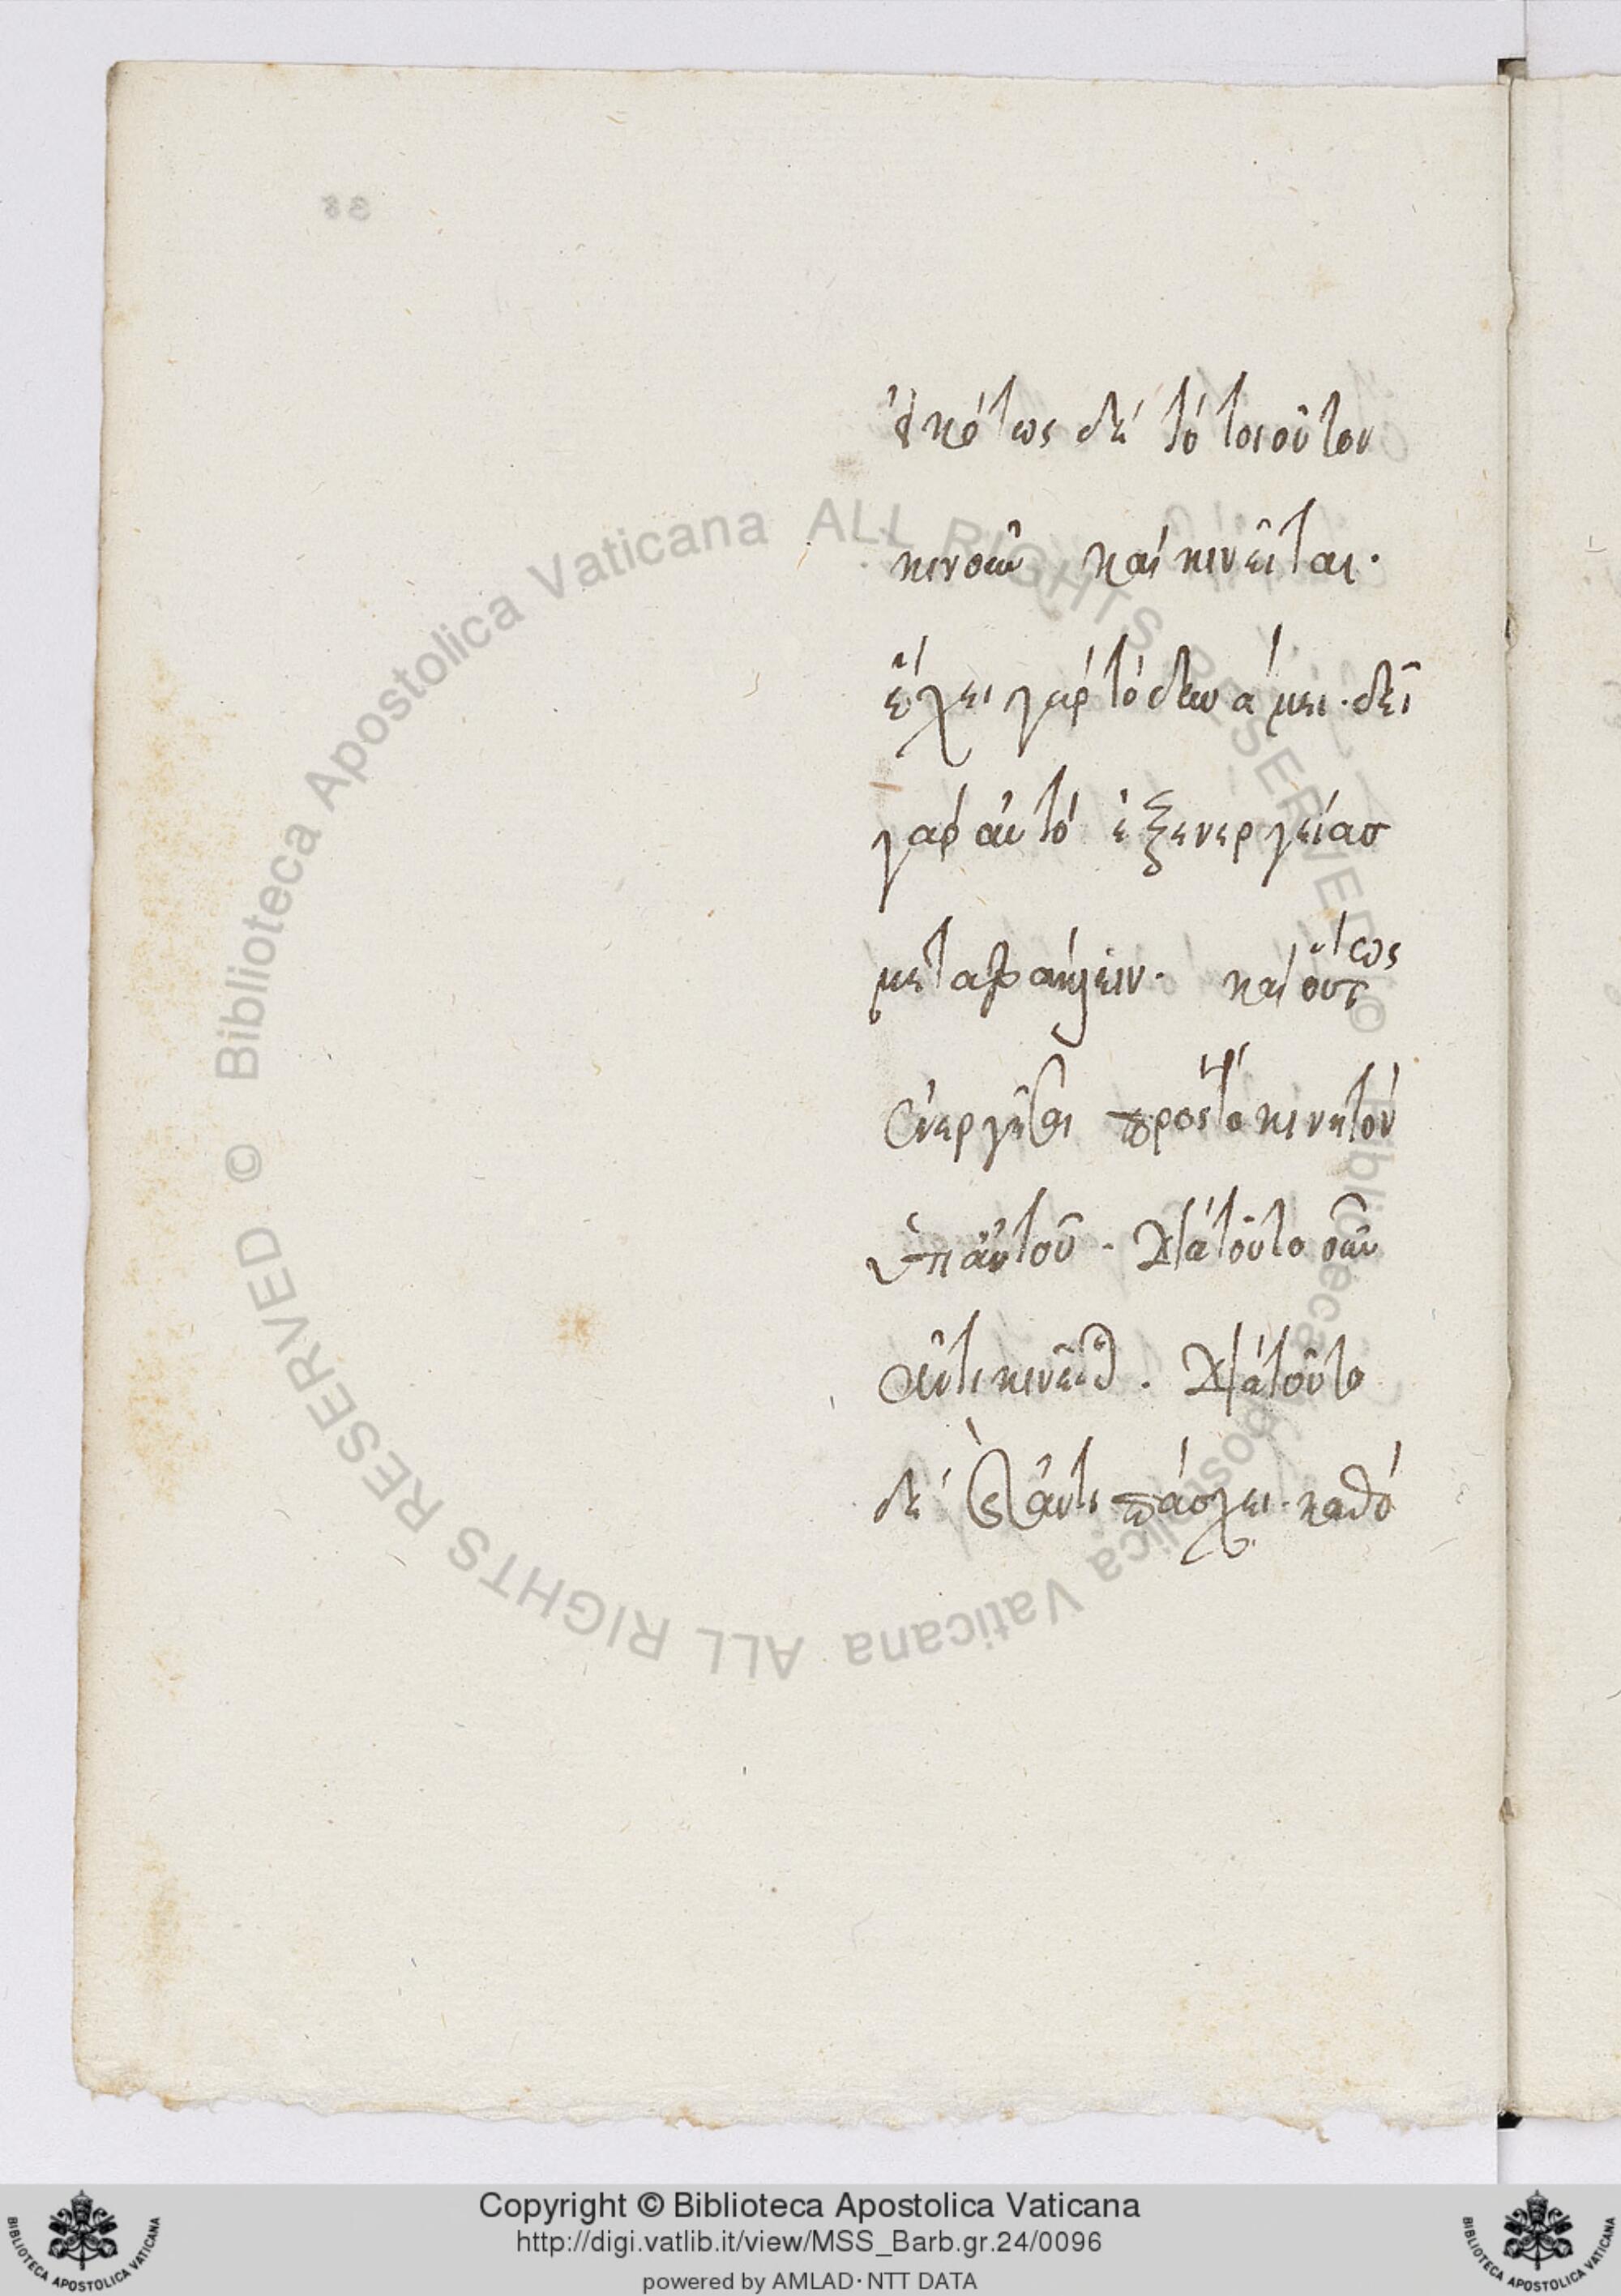 εἰκότως δὲ τὸ τοιοῦτον
κινοῦν καὶ κινεῖται·
ἔχει γὰρ τὸ δυνάμει· δεῖ
γὰρ αὐτὸ ἐξ ἐνεργείασ
μεταβαίνειν· καὶ οὕτως
ἐνεργῆσαι πρὸς τὸ κινητὸν
ὑπ αὐτοῦ· διὰ τοῦτο οὖν
ἀντικινεῖται· διὰ τοῦτο
δὲ καὶ ἀντιπάσχει· καθὸ
38
Biblioteca Apostolica Vaticana ALL RIGHTS RESERVED ©
Biblioteca Apostolica Vaticana ALL RIGHTS RESERVED ©
Copyright © Biblioteca Apostolica Vaticana
http://digi.vatlib.it/view/MSS_Barb.gr.24/0096
powered by AMLAD·NTT DATA
BIBLIOTECA APOSTOLICA VATICANA
BIBLIOTECA APOSTOLICA VATICANA